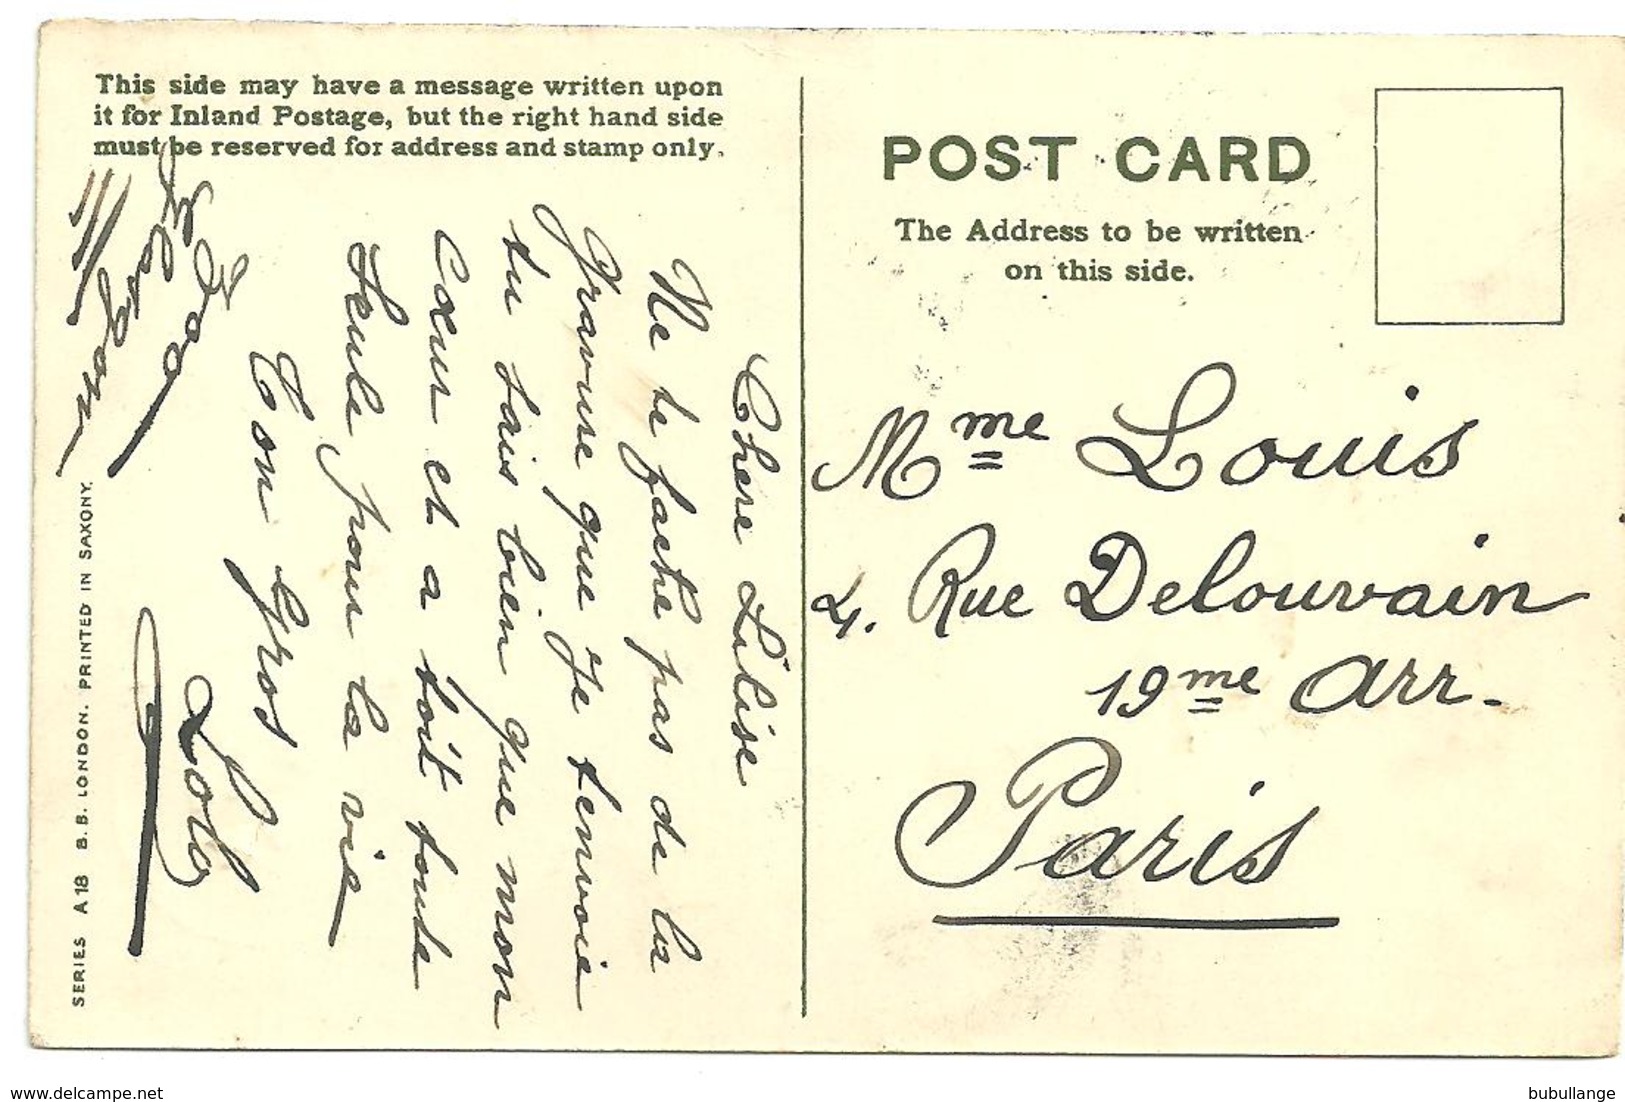 This side may have a message written upon
it for Inland Postage, but the right hand side
must be reserved for address and stamp only.
Chere Lilise
Ne te fache pas de la
Gravure que Je tenvoie
tu sais bien que mon
Cœur et a toit toute
Seule pour la vie
Ton Gros
Lolo
SERIES A 18 B.B. LONDON. PRINTED IN SAXONY.
POST CARD
The Address to be written
on this side.
Mme Louis
4. Rue Delouvain
19me Arr.
Paris
www.delcampe.net
bubullange